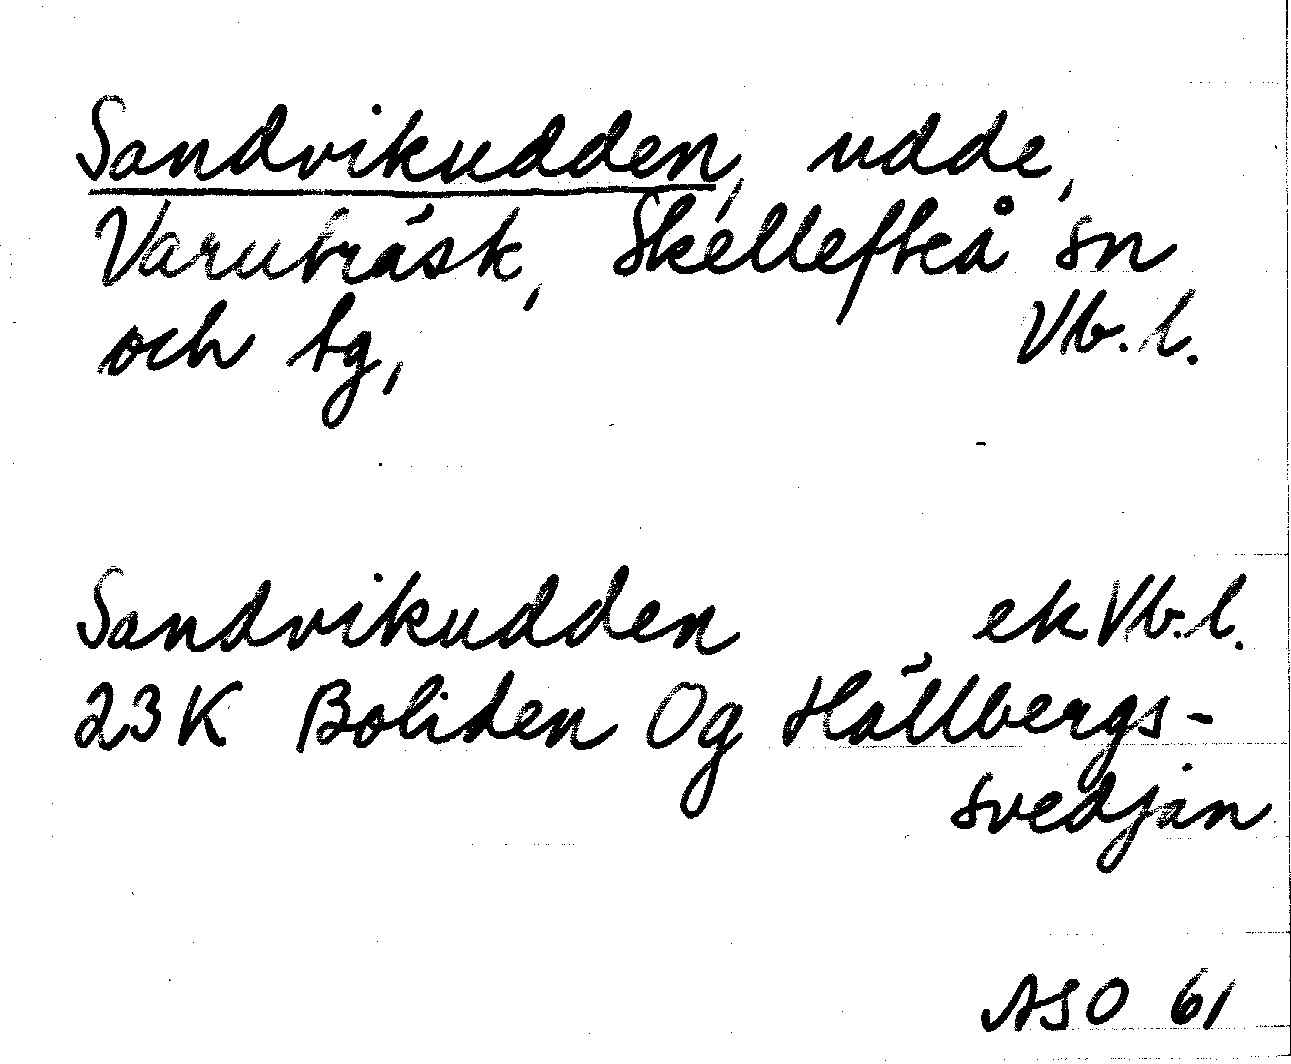 Sandvikudden, udde,
Varuträsk, Skellefteå sn
och tg, Vb. l.
Sandvikudden ek Vb. l.
23K Boliden Og Hällbergs-
svedjan
ASO 61